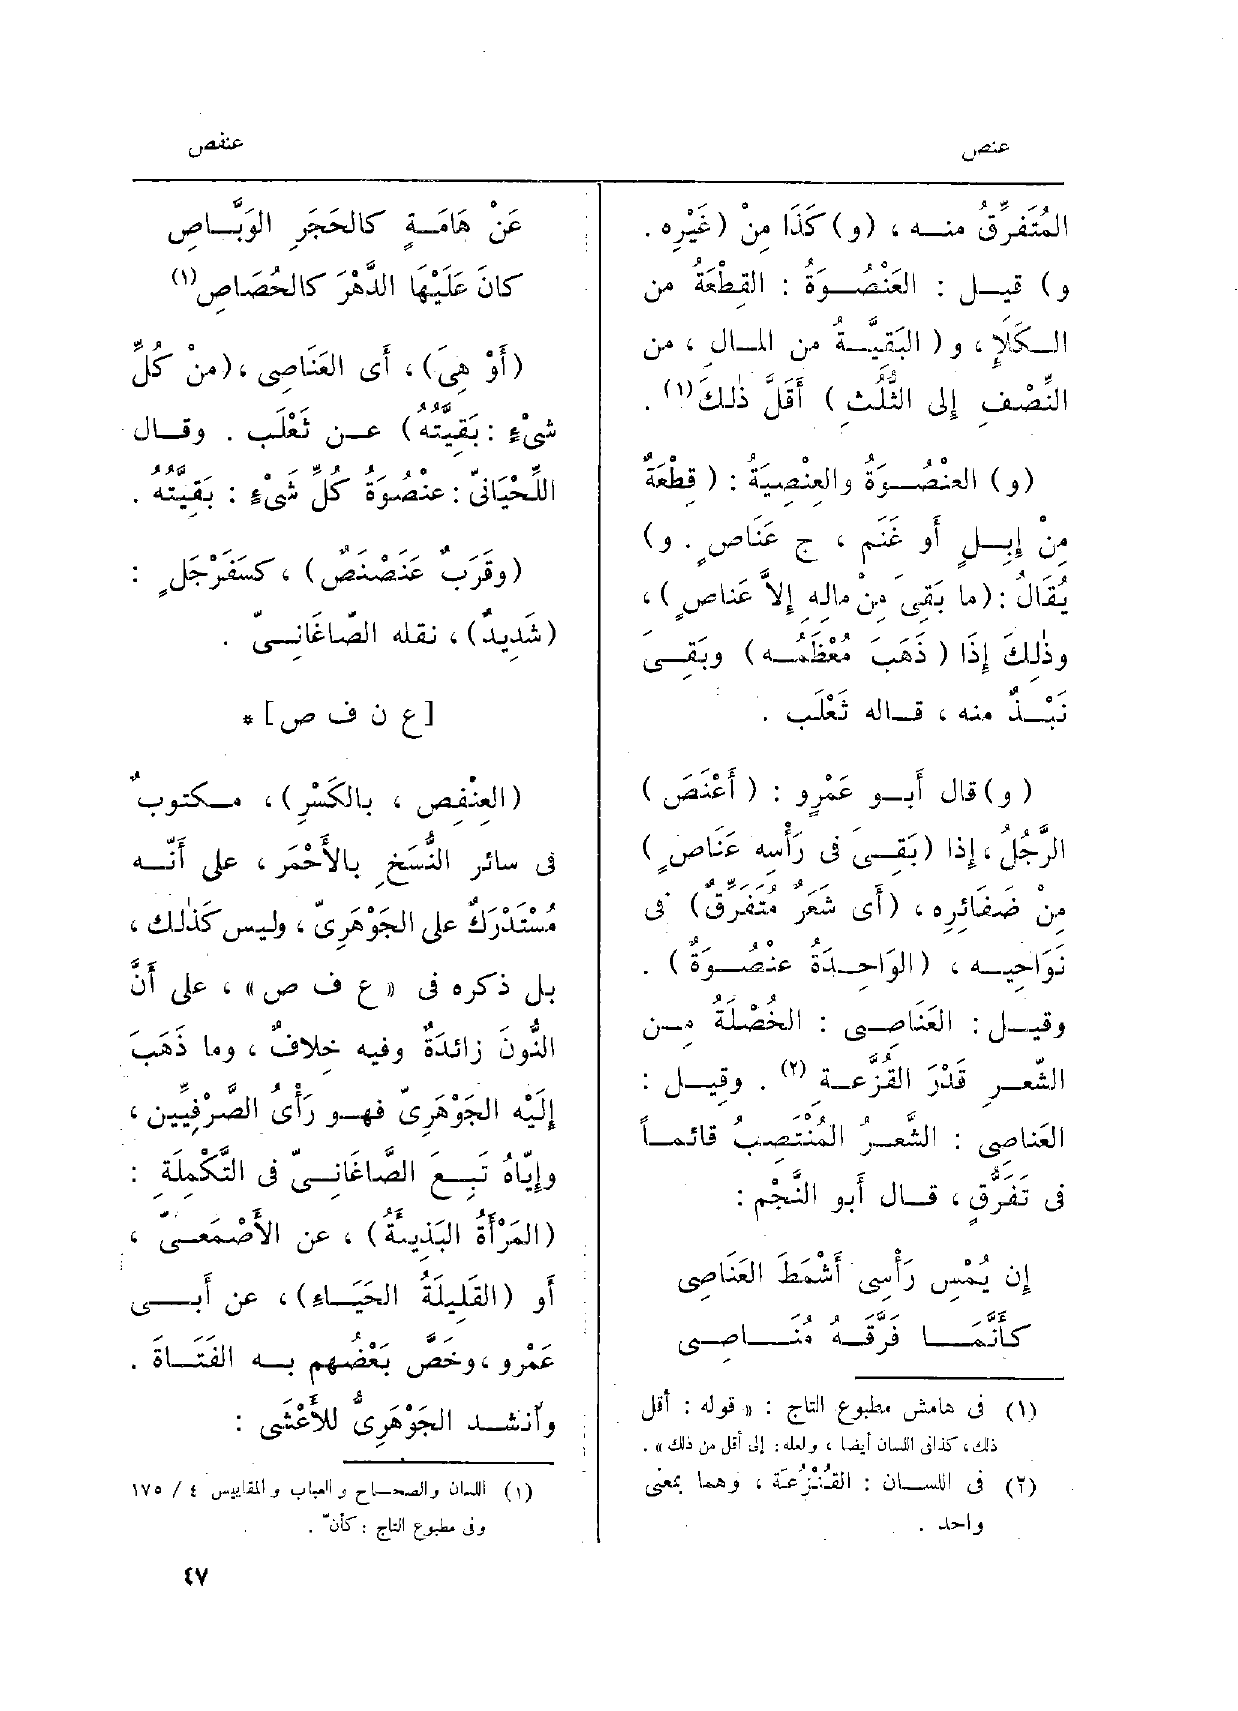 عنص
عنفص
المُتَفرِّقُ منه ، (و) كَذَا مِنْ (غَيْرِه .
و) قيل : العَنْصُوَةُ : القِطْعَةُ من
الكَلَإِ ، و (البَقِيَّةُ من المالِ ، من
النِّصْفِ إلى الثُّلُثِ ) أَقَلَّ ذٰلكَ (١) .
(و) العنْصُوَةُ والعِنْصِيَةُ : ( قِطْعَةٌ
مِنْ إِبِلٍ أَو غَنَمٍ ، ج عَنَاصٍ . و)
يُقَالُ : (ما بَقِىَ مِنْ مالِهِ إِلاَّ عَناصٍ) ،
وذٰلكَ إِذَا ( ذَهَبَ مُعْظَمُه ) وبَقِىَ
نَبْذٌ منه ، قاله ثَعْلَب .
( و) قال أَبو عَمْرٍو : ( أَعْنَصَ )
الرَّجُلُ ، إِذا (بَقِىَ فى رَأْسِه عَنَاصٍ )
مِنْ ضَفَائِرِه ، ( أَى شَعرٌ مُتَفَرِّقٌ) فى
نَوَاحِيه ، (الوَاحِدَةُ عنْصُوَةٌ ) .
وقيل : العَنَاصِى : الخُصْلَةُ من
الشَّعرِ قَدْرَ القُزَّعةِ (٢) . وقيل :
العَناصِى : الشَّعرُ المُنْتَصِبُ قائماً
فى تَفَرُّقٍ ، قال أَبو النَّجْمِ :
إِن يُمْسِ رَأْسِى أَشْمَطَ العَنَاصِى
كَأَنَّمَا فَرَّقَهُ مُنَاصِى
(١) فى هامش مطبوع التاج : « قوله : أقل
ذلك ، كذا فى اللسان أيضا ، ولعله : إلى أقل من ذلك » .
(٢) فى اللسان : القُنْزُعَة ، وهما بمعنى
واحد .
عَنْ هَامَةٍ كالحَجَرِ الوَبَّاصِ
كانَ عَلَيْهَا الدَّهْرَ كالحُصَاصِ (١)
(أَوْ هِىَ) ، أَى العَنَاصِى ، (مِنْ كُلِّ
شىْءٍ : بَقِيَّتُهُ) عن ثَعْلَبٍ . وقال
اللِّحْيَانىّ : عنْصُوَةُ كُلِّ شَىْءٍ : بَقِيَّتُه .
(وقَرَبٌ عَنَصْنَصٌ) ، كسَفَرْجَلٍ :
(شَدِيدٌ) ، نقله الصّاغَانِىّ .
[ ع ن ف ص ] *
(العِنْفِص ، بالكَسْرِ) ، مكتوبٌ
فى سائر النُّسَخِ بالأَحْمَرِ ، على أَنّه
مُسْتَدْرَكٌ على الجَوْهَرِىّ ، وليس كَذٰلك ،
بل ذكره فى « ع ف ص » ، على أَنَّ
النُّونَ زائدَةٌ وفيه خلافٌ ، وما ذَهَبَ
إِلَيْه الجَوْهَرِىّ فهو رَأْىُ الصَّرْفِيِّين ،
وإِيّاهُ تَبِعَ الصَّاغَانِىّ فى التَّكْمِلَةِ :
(المَرْأَةُ البَذِيئَةُ) ، عن الأَصْمَعِىّ ،
أَو (القَلِيلَةُ الحَيَاءِ) ، عن أَبى
عَمْرو ، وخَصَّ بَعْضُهم به الفَتَاةَ .
وأَنشد الجَوْهَرِىُّ للأَعْشَى :
(١) اللسان والصحاح والعباب والمقاييس ٤ / ١٧٥
وفى مطبوع التاج : كأنّ .
٤٧